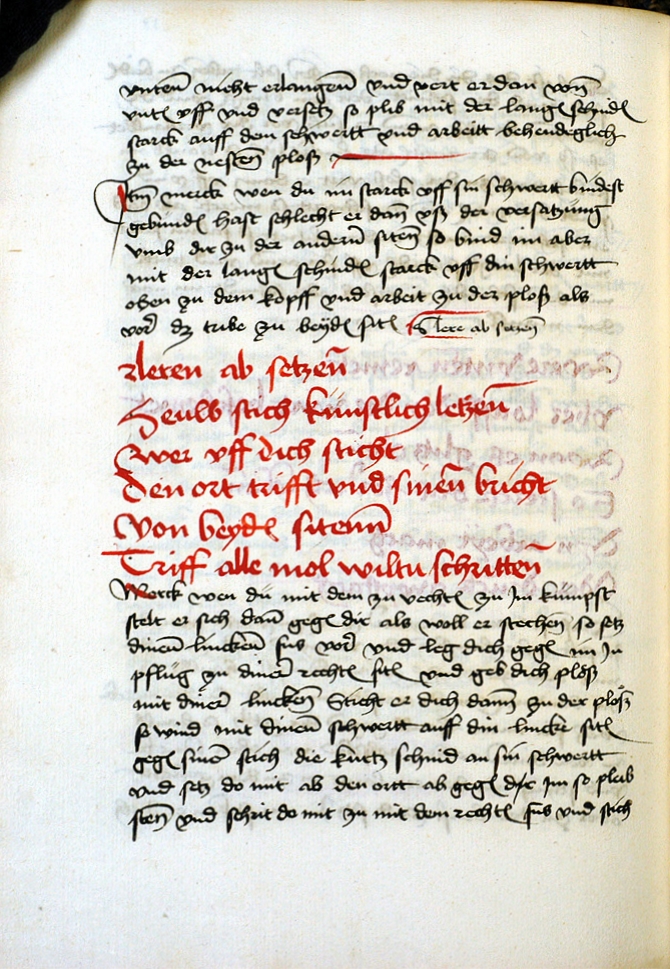 unteñ nicht erlangeñ vnd vert er dan von
unteñ vff vnd versetz so plib mit der lange schnide
starck auff dem schwertt vnd arbeitt behendeglich
zu der nesteñ ploß
Item merck wen du im starck vff sin schwertt bindest
gebunde hast schlecht er dañ vß der versatzung
vmb dir zu der anderñ siteñ so bind im aber
mit der lange schnide starck vff din schwertt
oben zu dem kopff vnd arbeit zu der ploß als
vor dz tribe zu beyde site Lere ab seczeñ
leren ab setzeñ
Heulb stich künstlich letzeñ
Wer vff dich sticht
Den ort trifft vnd sineñ bricht
Von beyde siteñ
Triff alle mol wiltu schritteñ
Merck wen du mit dem zu vechte zu im kümpst
stelt er sich dañ gege dir als woll er stechen so setz
dineñ linckeñ fus vor vnd leg dich gege im in
pflüg zu diner rechte site vnd geb dich ploß
mit diner linckeñ Sticht er dich dann zu der ploß
so wind mit dineñ schwertt auff din lincke site
gege sineñ stich die kurtz schnid an sin schwertt
vnd setz do mit ab den ortt ab gege dir im so plib
steñ vnd schrit do mit zu mit dem rechte fus vnd stich